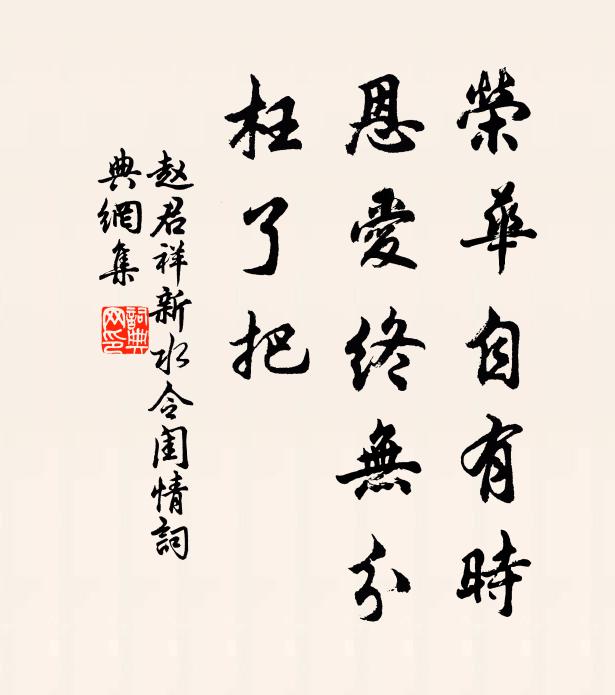 榮華自有時
恩愛終無分
枉了把
赵君祥新水令闺情詞
典網集
詞典
网印